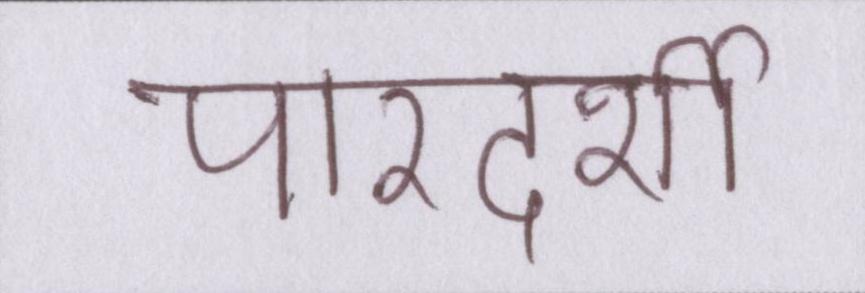 पारदर्शी